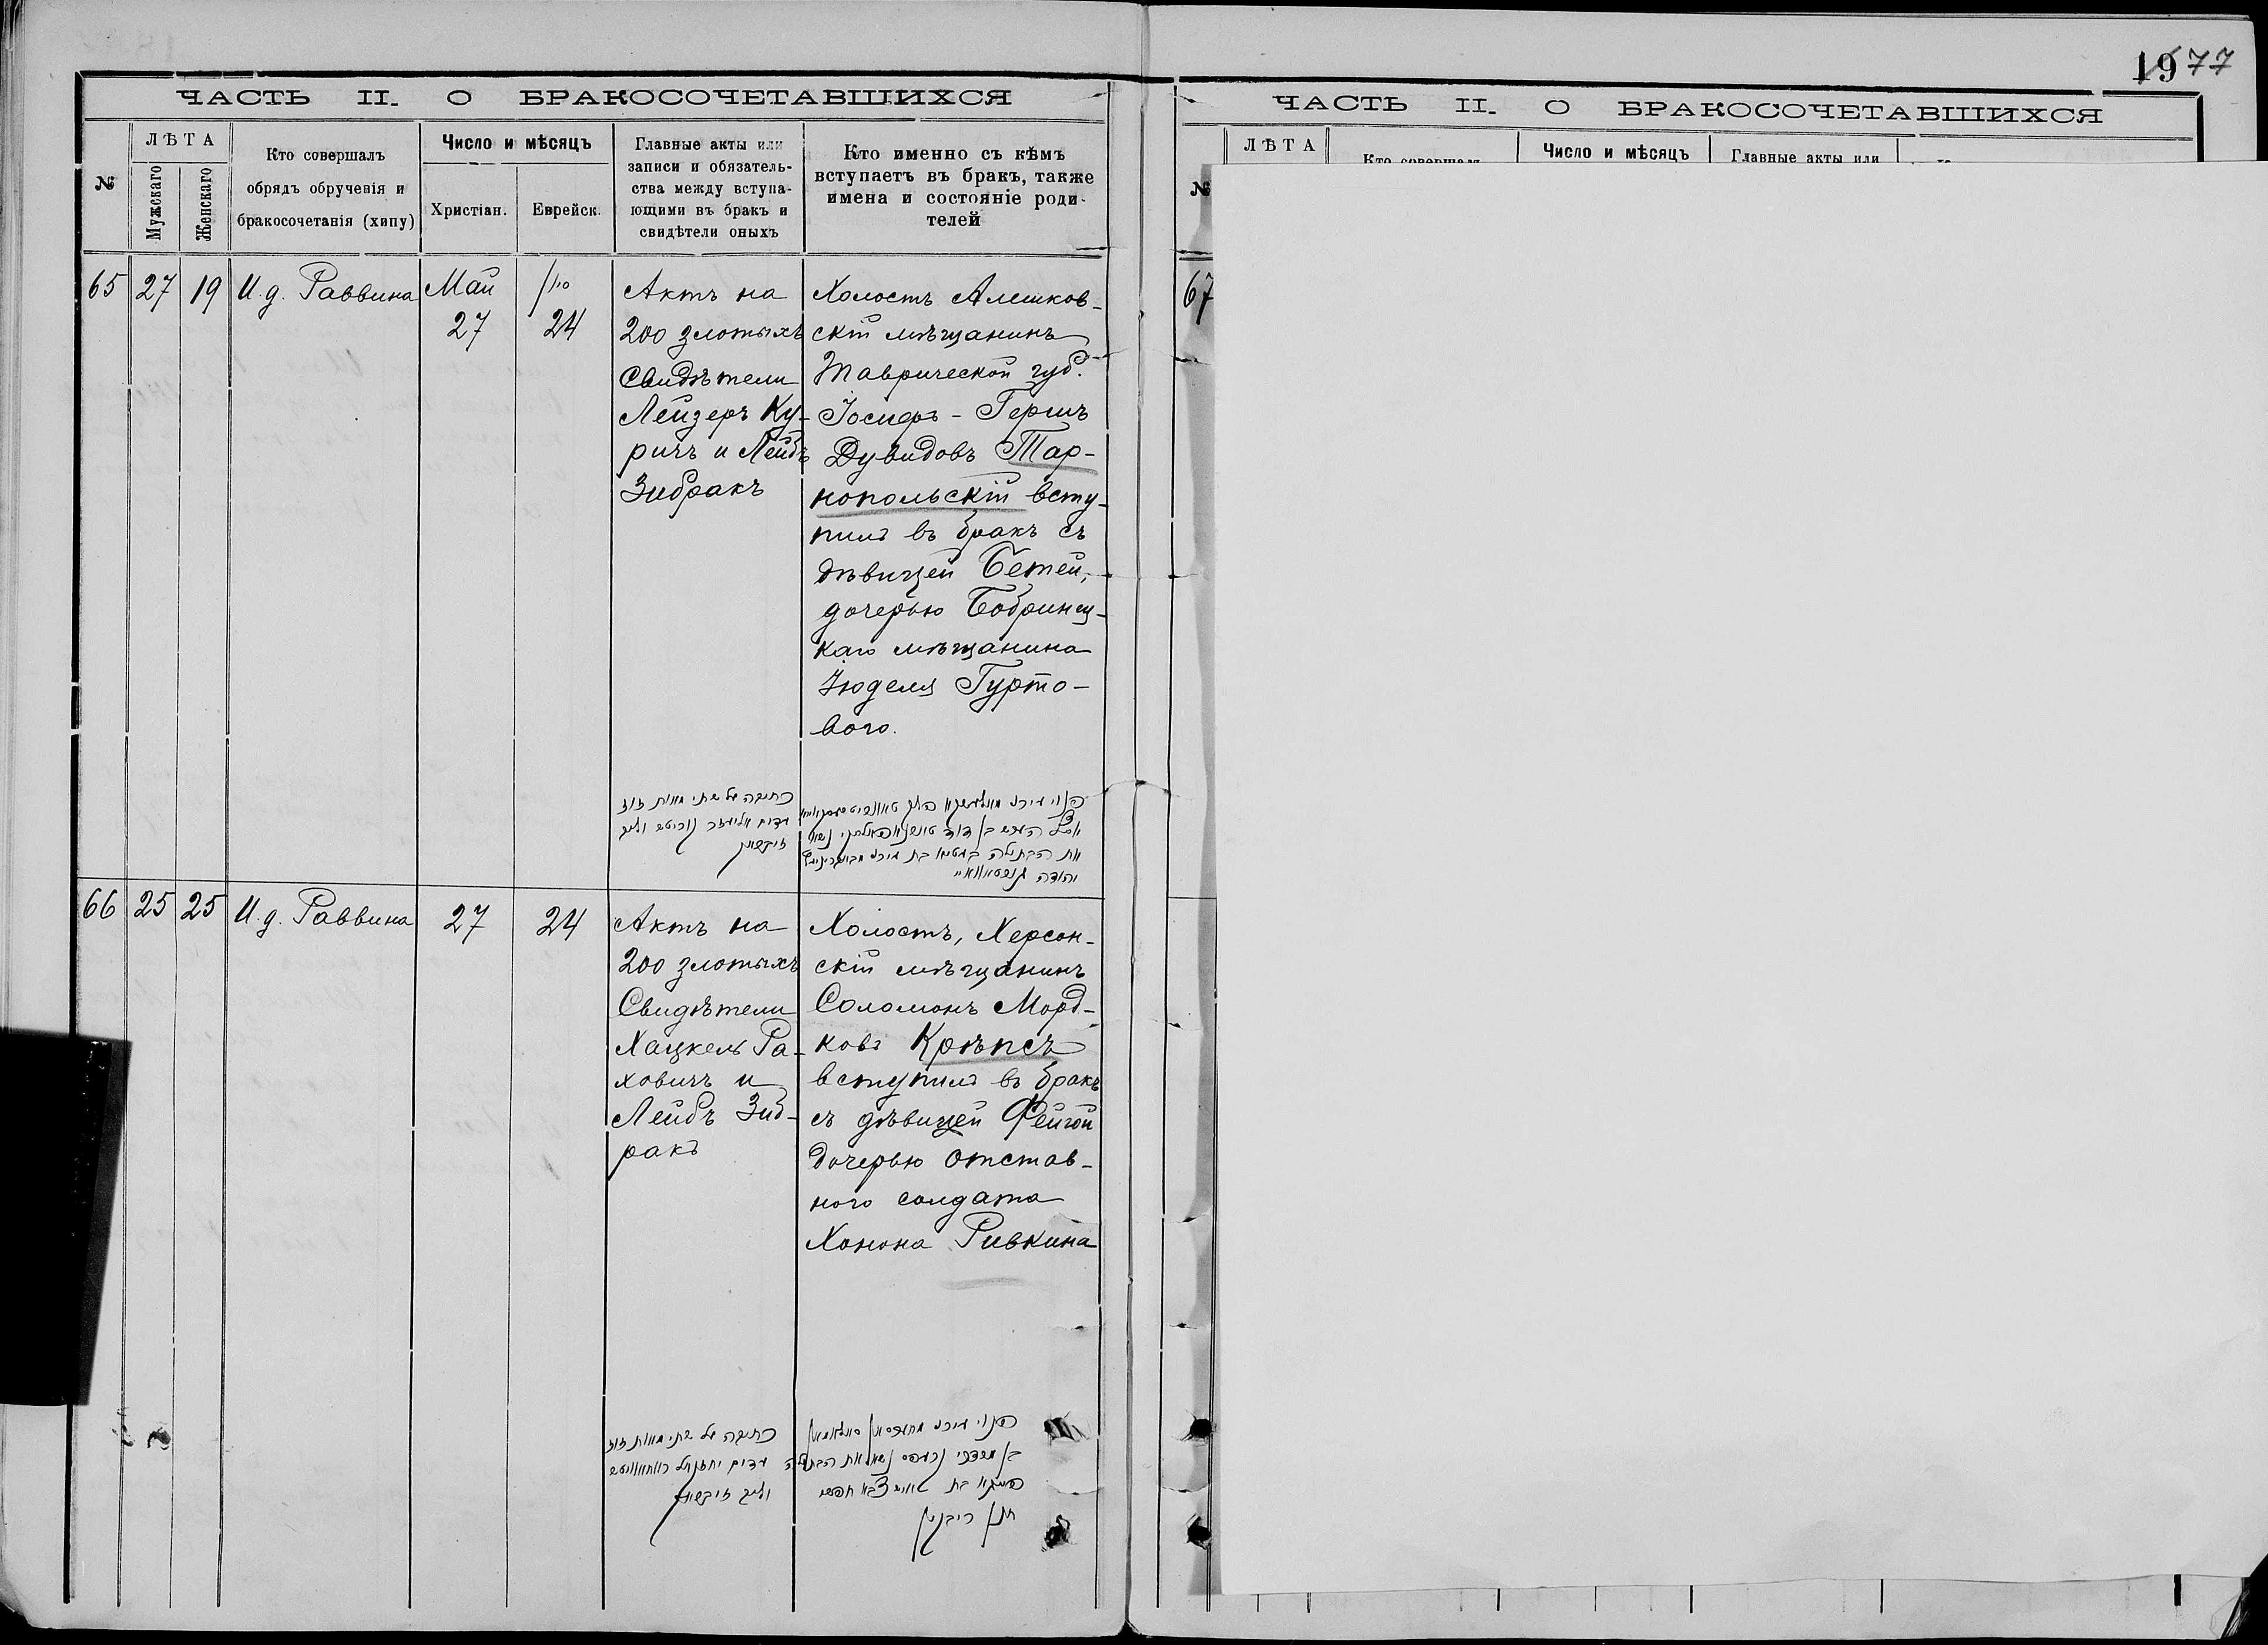 ЧАСТЬ II. О БРАКОСОЧЕТАВШИХСЯ
№
ЛѢТА
Мужескаго
Женскаго
Кто совершалъ
обрядъ обрученія и
бракосочетанія (хипу)
Число и мѣсяцъ
Христіан.
Еврейск.
Главные акты или
записи и обязатель-
ства между вступа-
ющими въ бракъ и
свидѣтели оныхъ
Кто именно съ кѣмъ
вступаетъ въ бракъ, также
имена и состояніе роди-
телей
65
27
19
И. д. Раввина
Май
27
24
Актъ на
200 злотыхъ
Свидѣтели
Лейзеръ Ку-
ричъ и Лейбъ
Зибракъ
Холостъ Алешков-
скій мѣщанинъ
Таврической губ.
Іосифъ-Гершъ
Дувидовъ Тар-
нопольскій всту-
пилъ въ бракъ съ
дѣвицей Бетей,
дочерью Бобринец-
каго мѣщанина
Іюделя Гурто-
вого.
כתובה של שתי מאות זוז
66
25
25
И. д. Раввина
27
24
Актъ на
200 злотыхъ
Свидѣтели
Хацкель Ра-
ховичъ и
Лейбъ Зиб-
ракъ
Холостъ, Херсон-
скій мѣщанинъ
Соломонъ Морд-
ковъ Крѣпсъ
вступилъ въ бракъ
съ дѣвицей Фейгой
дочерью отстав-
ного солдата
Хонона Ривкина
כתובה של שתי מאות זוז
ריבקין
1977
ЧАСТЬ II. О БРАКОСОЧЕТАВШИХСЯ
№
ЛѢТА
Кто совершалъ
Число и мѣсяцъ
Главные акты или
67